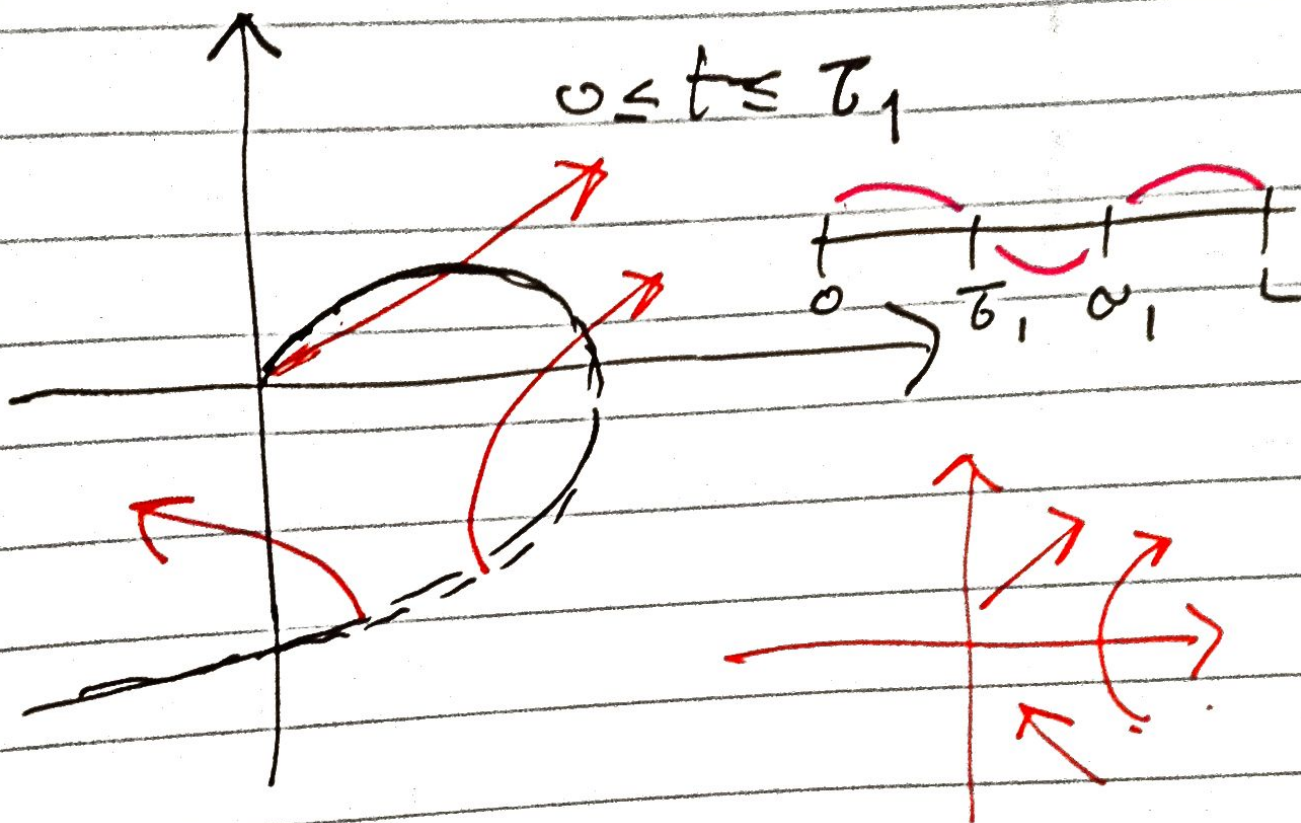 0 ≤ t ≤ τ₁
0 τ₁ σ₁ L